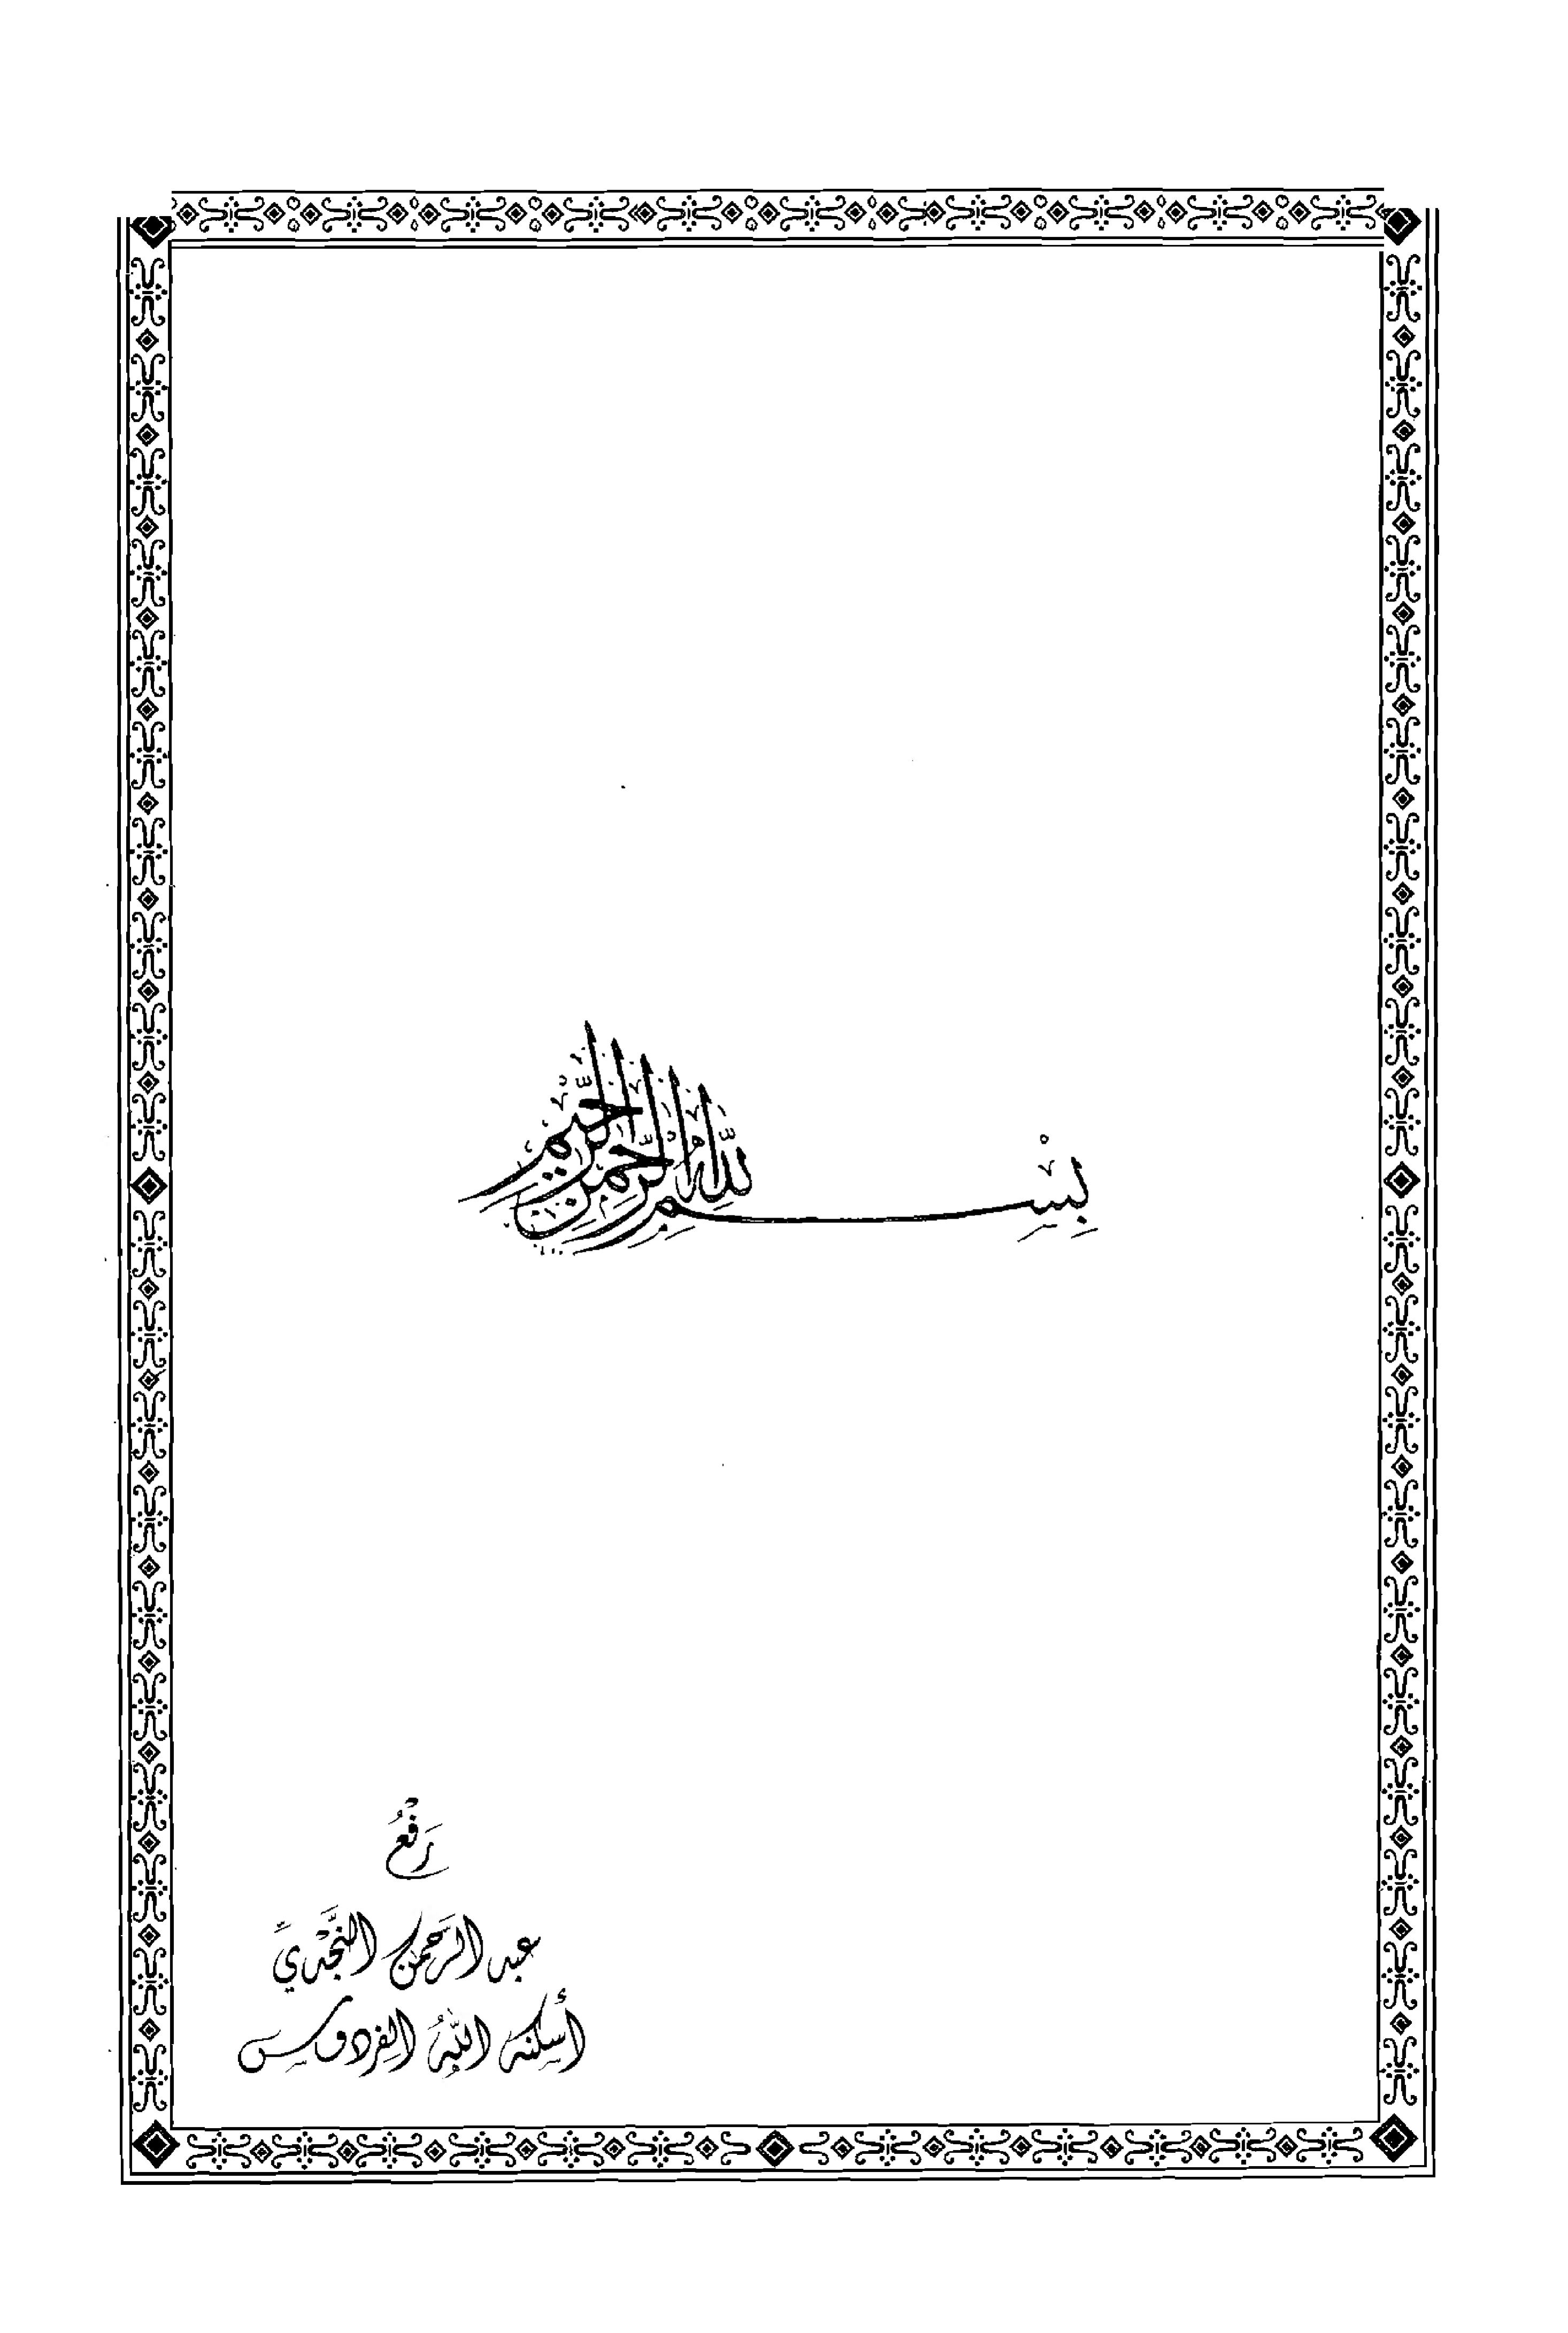 بِسْمِ اللَّهِ الرَّحْمَنِ الرَّحِيمِ
رَفْعُ
عبد الرَّحمن النَّجْديِّ
أسكنه اللهُ الفِردوس